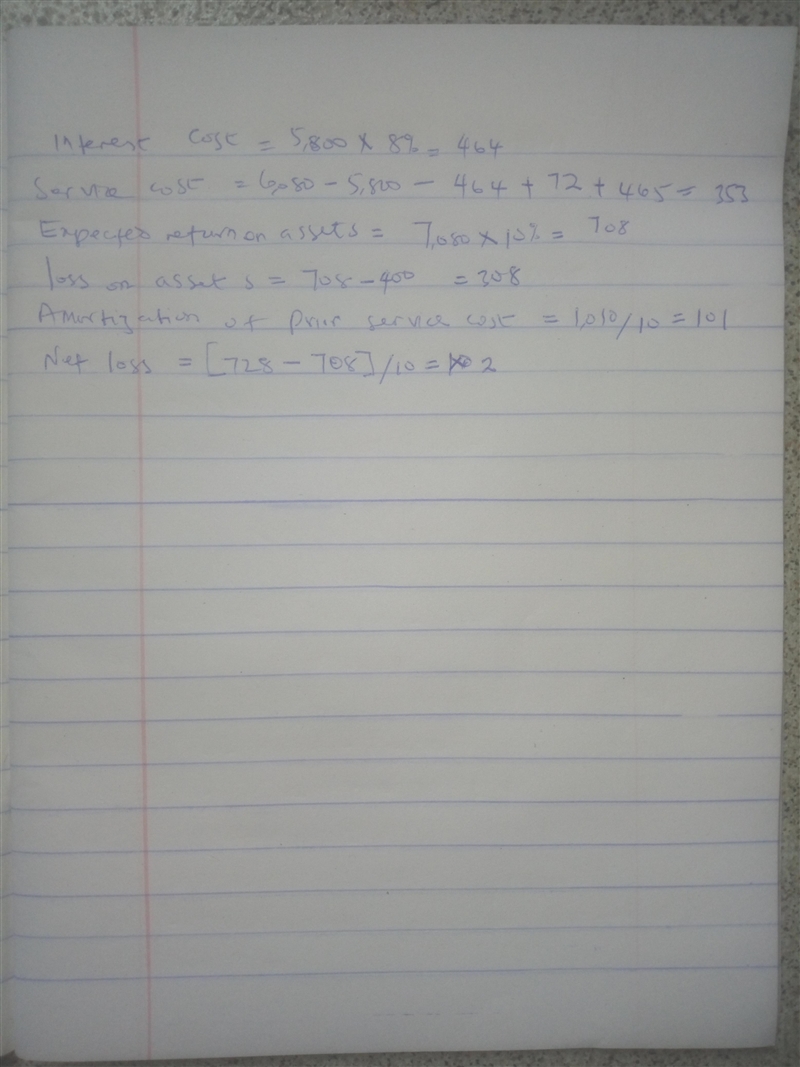 Interest cost = 5,800 x 8% = 464
Service cost = 6,080 - 5,800 - 464 + 72 + 465 = 353
Expected return on assets = 7,080 x 10% = 708
loss on assets = 708 - 400 = 308
Amortization of prior service cost = 1,010/10 = 101
Net loss = [728 - 708]/10 = 2